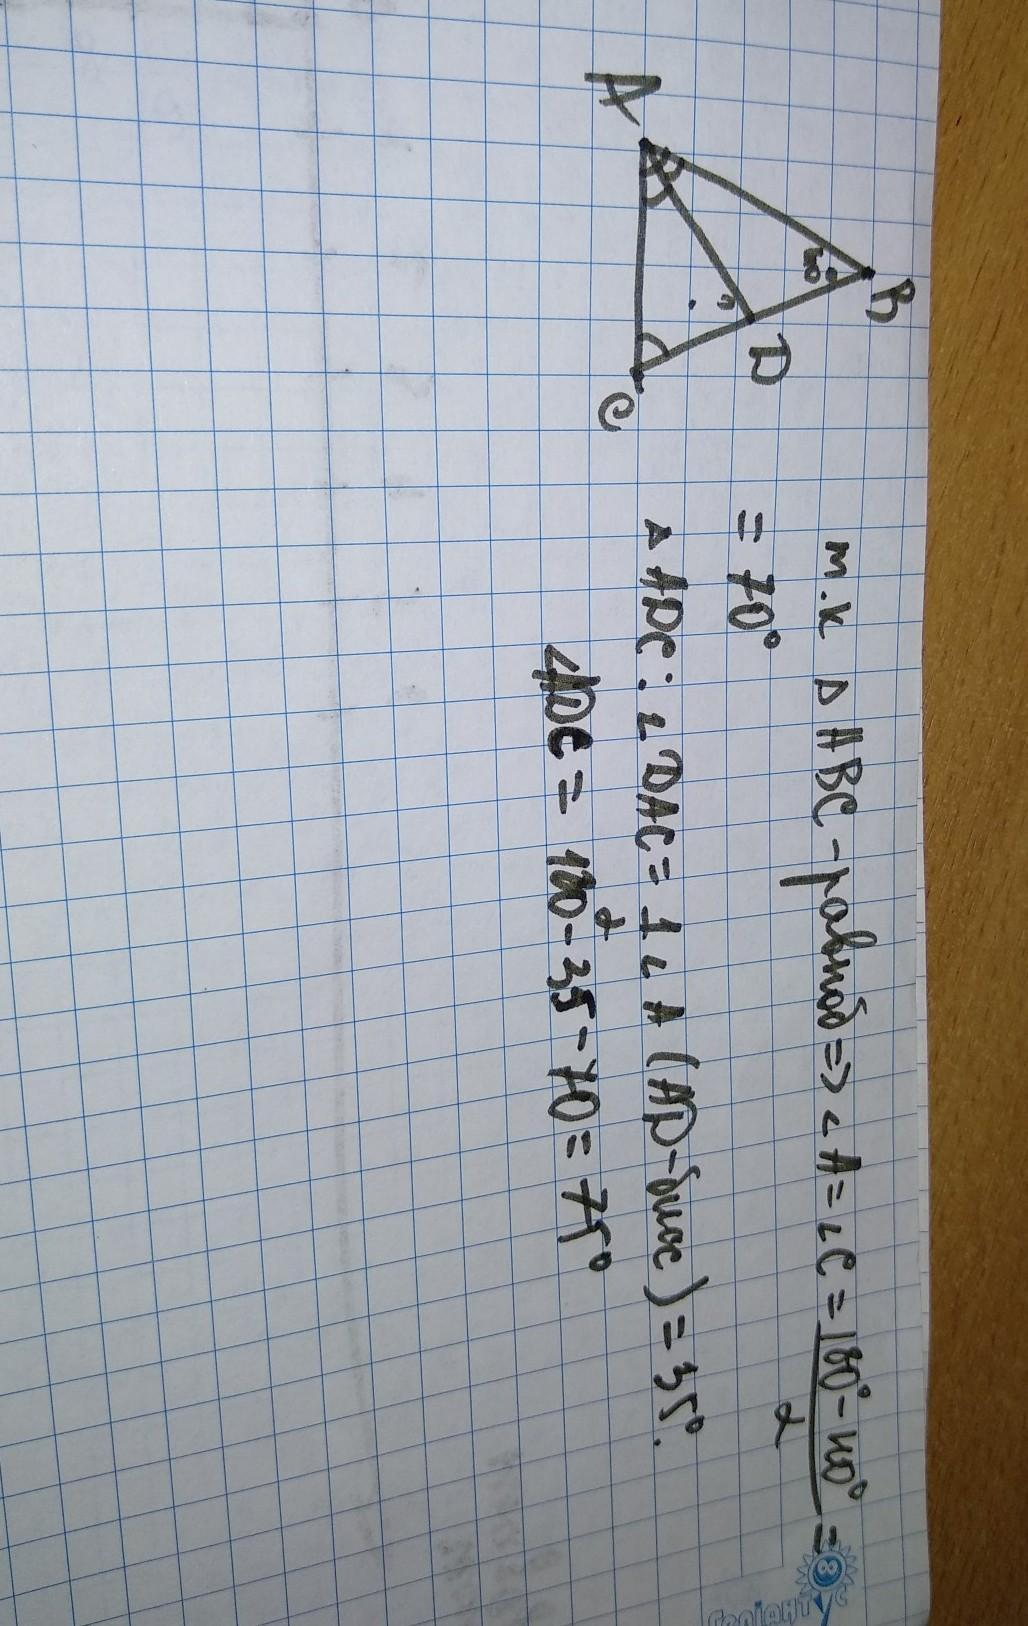 A
B
40°
D
?
C
т.к △ABC - равноб => ∠A = ∠C = 180° - 40° =
2
= 70°
△ADC: ∠DAC = 1 ∠A (AD - бисс) = 35°.
2
ADC = 180 - 35 - 70 = 75°